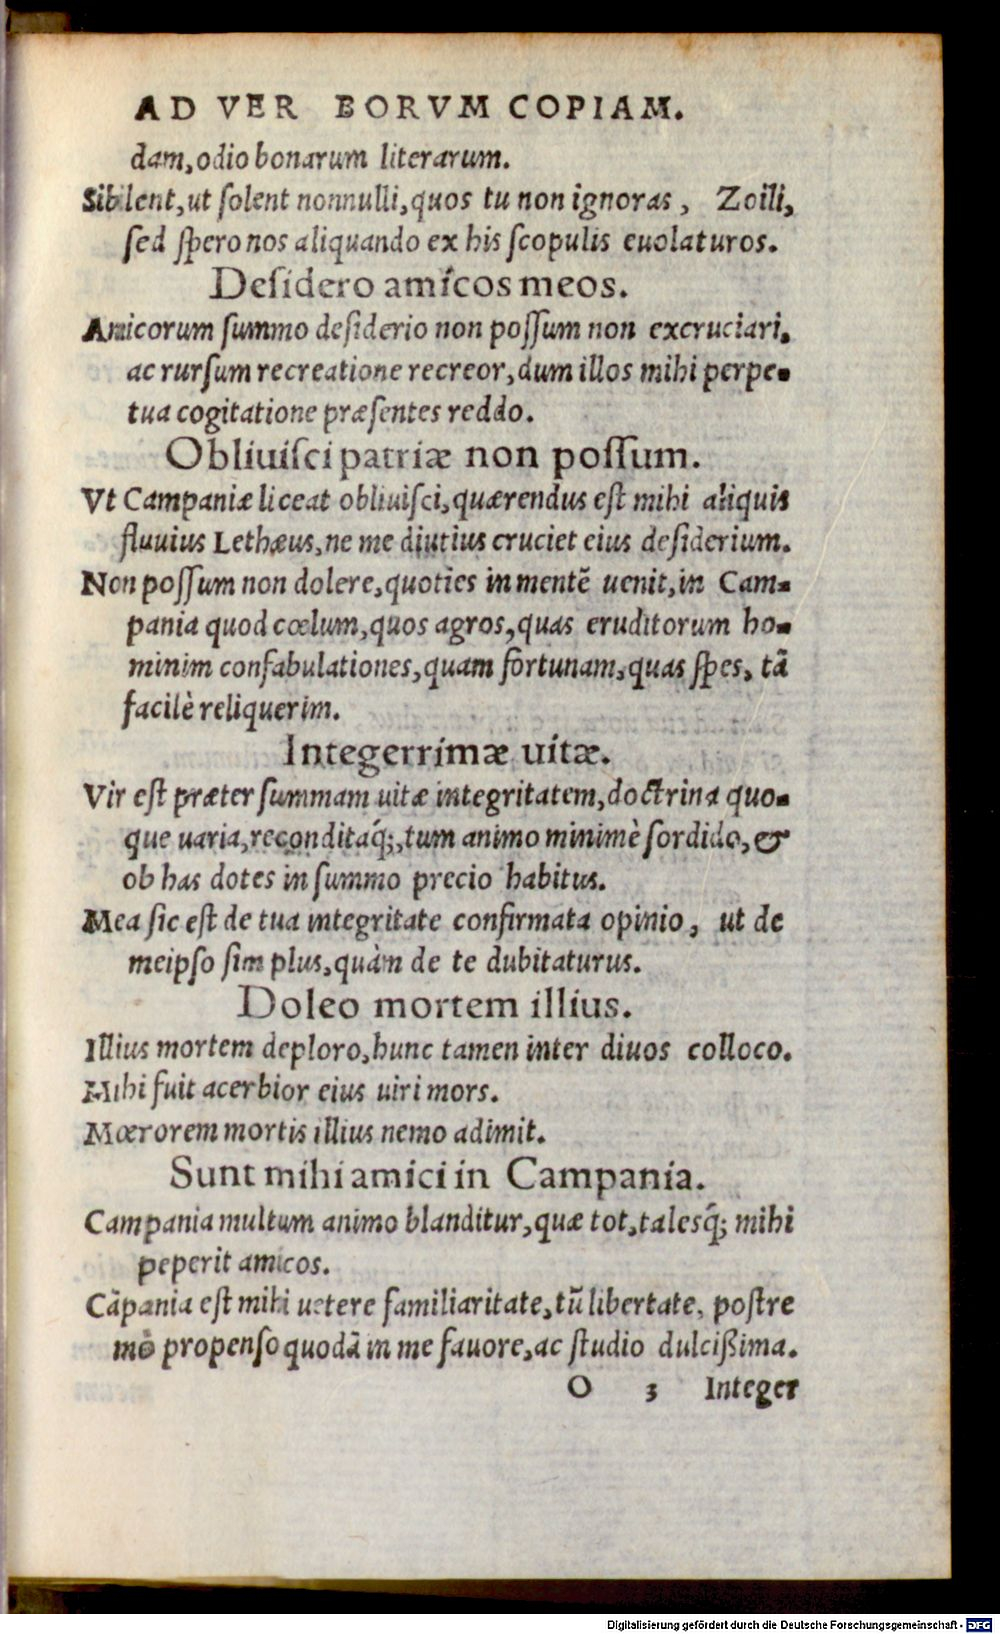 AD VER BORVM COPIAM.
dam, odio bonarum literarum.
Sibilent, ut solent nonnulli, quos tu non ignoras, Zoili,
sed spero nos aliquando ex his scopulis euolaturos.
Desidero amicos meos.
Amicorum summo desiderio non possum non excruciari,
ac rursum recreatione recreor, dum illos mihi perpe-
tua cogitatione præsentes reddo.
Obliuisci patriæ non possum.
Vt Campaniæ liceat obliuisci, quærendus est mihi aliquis
fluuius Lethæus, ne me diutius cruciet eius desiderium.
Non possum non dolere, quoties in mentē uenit, in Cam-
pania quod cœlum, quos agros, quas eruditorum ho-
minim confabulationes, quam fortunam, quas spes, tā
facilè reliquerim.
Integerrimæ uitæ.
Vir est præter summam uitæ integritatem, doctrina quo-
que uaria, reconditaq́;, tum animo minimè sordido, &
ob has dotes in summo precio habitus.
Mea sic est de tua integritate confirmata opinio, ut de
meipso sim plus, quàm de te dubitaturus.
Doleo mortem illius.
Illius mortem deploro, hunc tamen inter diuos colloco.
Mihi fuit acerbior eius uiri mors.
Mœrorem mortis illius nemo adimit.
Sunt mihi amici in Campania.
Campania multum animo blanditur, quæ tot, talesq́; mihi
peperit amicos.
Cāpania est mihi uetere familiaritate, tū libertate, postre
mò propenso quodā in me fauore, ac studio dulcißima.
O 3 Integer
Digitalisierung gefördert durch die Deutsche Forschungsgemeinschaft - DFG